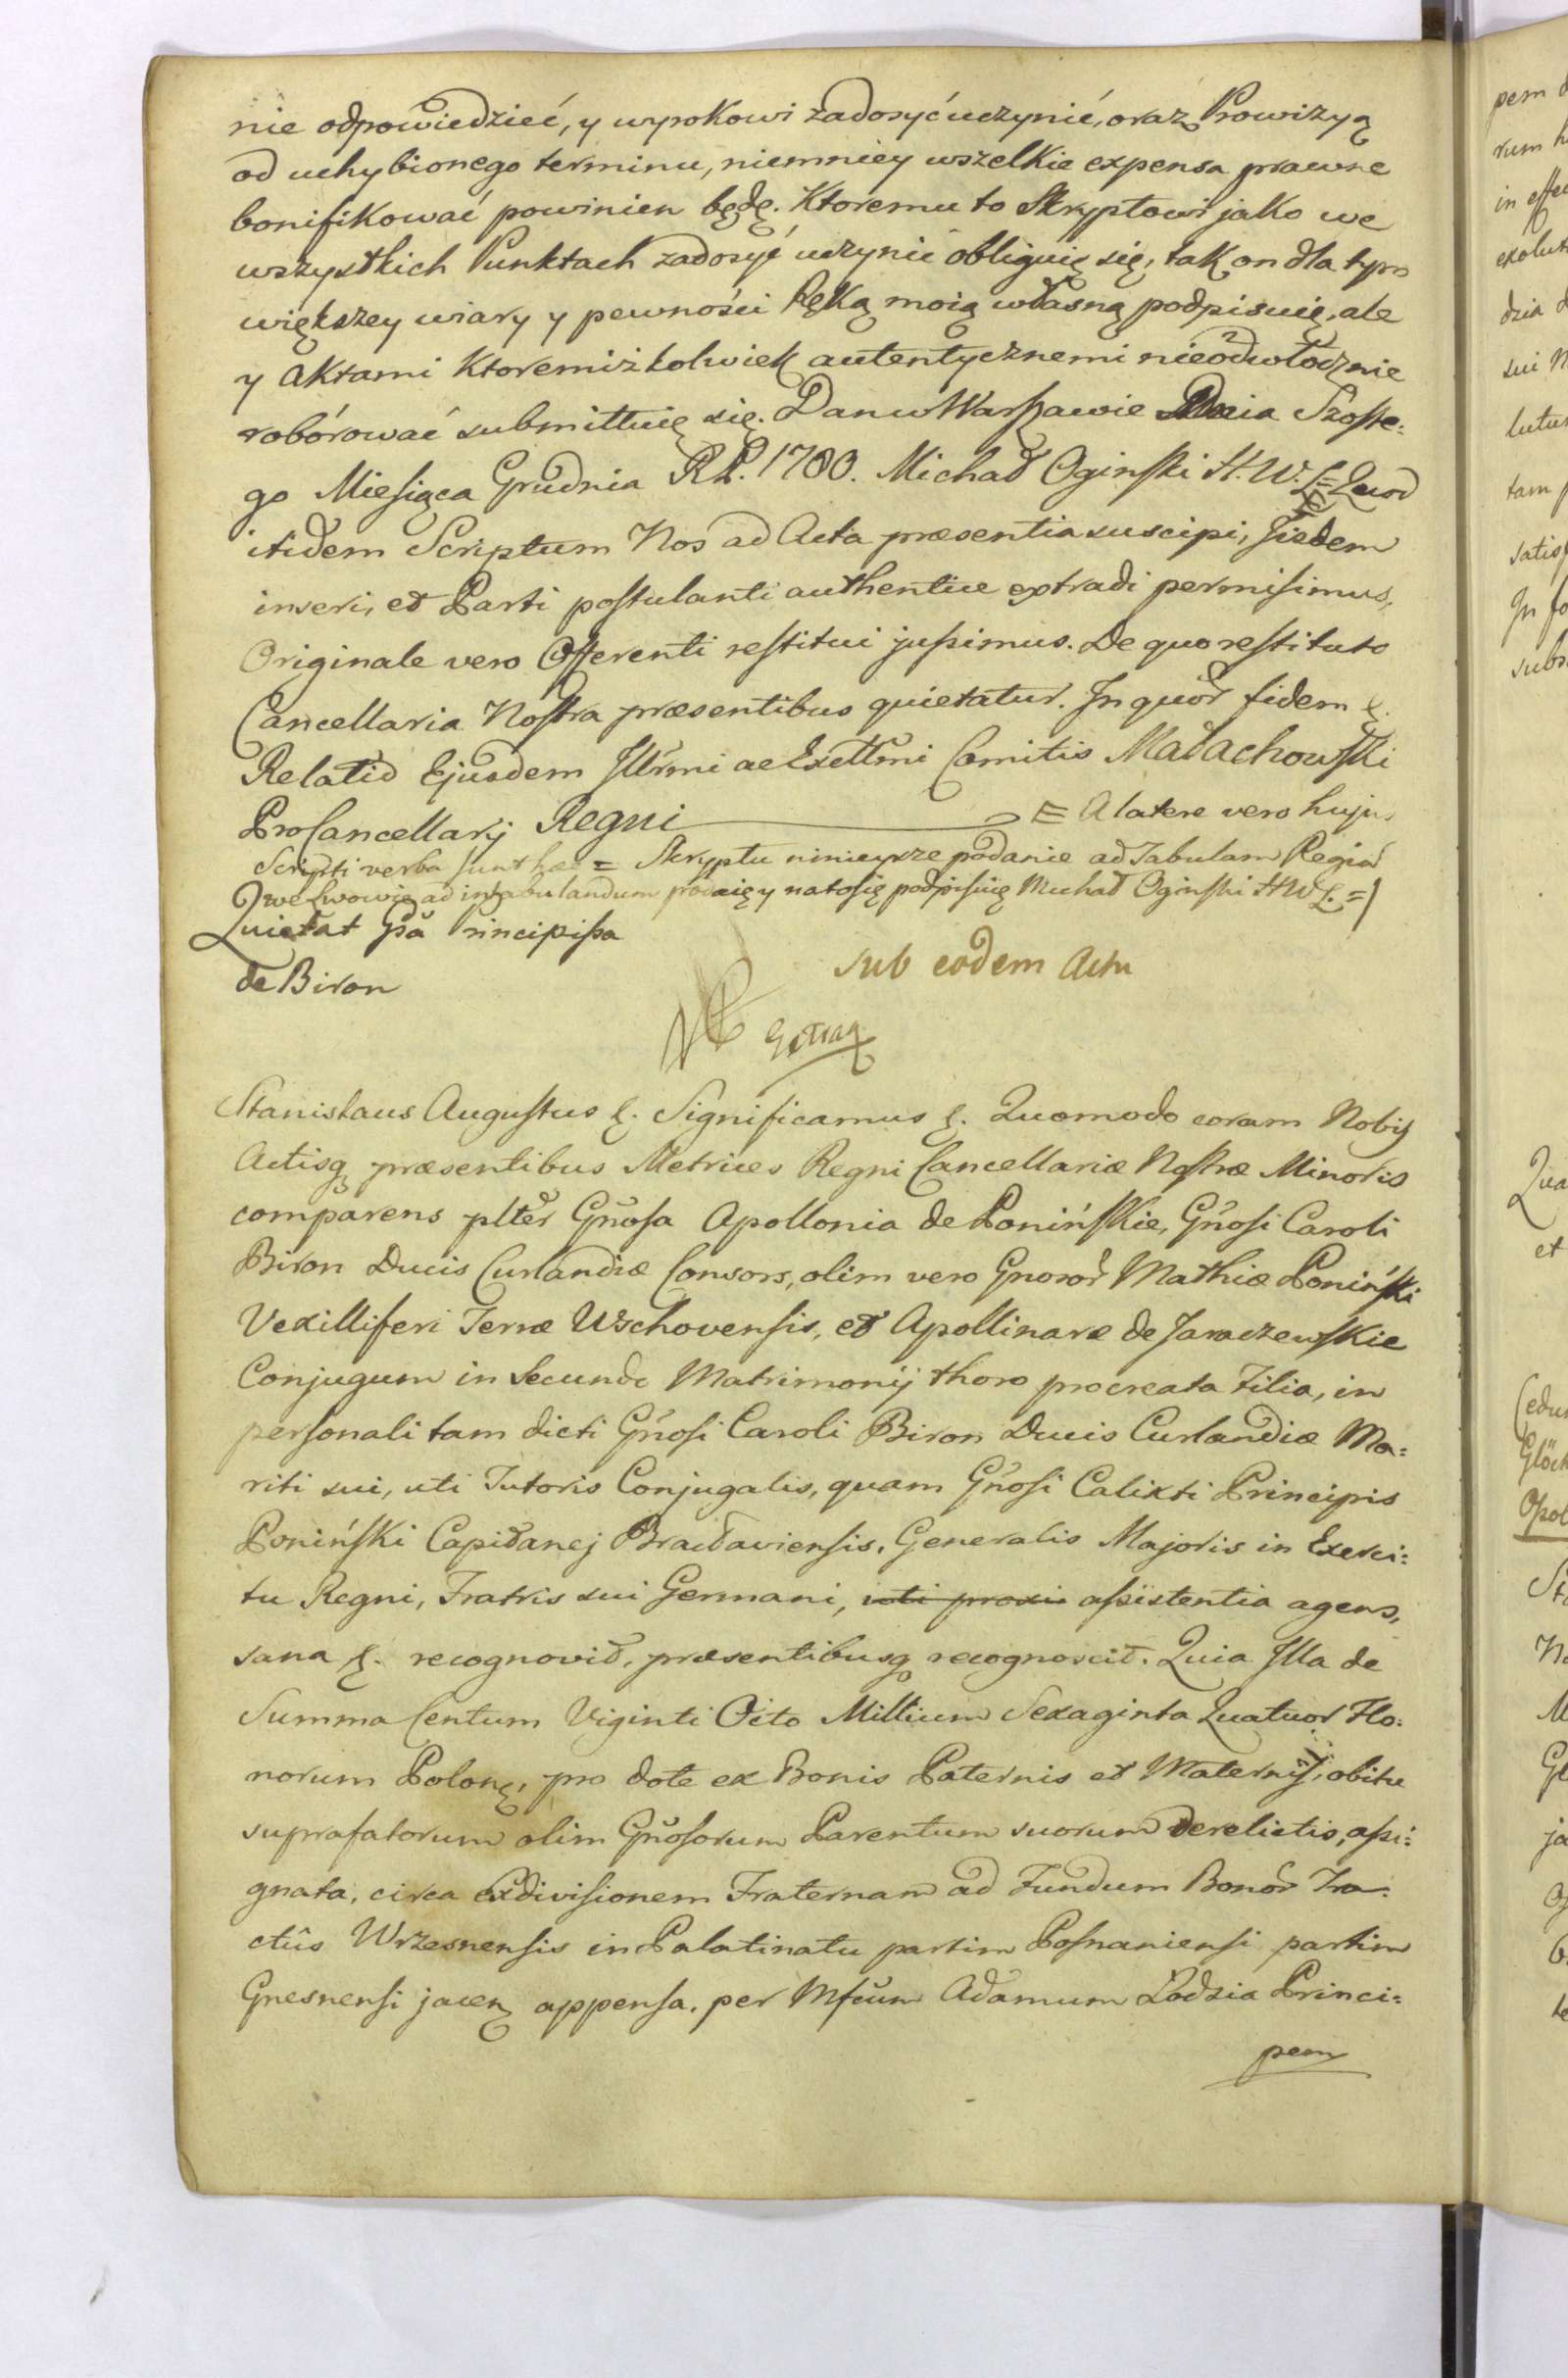 nie odpowiedzieć, y wyrokowi zadosyć uczynić, oraz Prowizyą
od uchybionego terminu, niemniey wszelkie expensa prawne
bonifikować powinien będę. Ktoremu to Skryptowi jako we
wszystkich Punktach zadosyć uczynić obliguię się, tak on dla tym
większey wiary y pewności Ręką moią własną podpisuię, ale
y Aktami Ktoremiżkolwiek autentycznemi nieodwłocznie
roborować submittuię się. Dan w Warszawie Dnia Szoste=
go Miesiąca Grudnia R.P. 1780. Michał Oginski H.W.L.= Quod
itidem Scriptum Nos ad Acta præsentia suscipi, Jisdem
inseri, et Parti postulanti authentice extradi permisimus,
Originale vero Offerenti restitui jussimus. De quo restituto
Cancellaria Nostra præsentibus quietatur. In quor fidem &.
Relatio Ejusdem Illrmi ac Exellmi Comitis Małachowski
ProCancellarij Regni = A latere vero hujus
Scripti verba sunt hæc = Skryptu ninieysze podanie ad Tabulam Regiam
we Lwowie ad intabulandum podaię y na to się podpisuię Michał Oginski HWL. =
Quietat Gsa Principissa
de Biron
sub eodem Actu
Stanislaus Augustus &. Significamus &. Quomodo coram Nobis
Actisq præsentibus Metrices Regni Cancellariæ Nostræ Minoris
comparens plter Gnosa Apollonia de Ponińskie, Gnosi Caroli
Biron Ducis Curlandiæ Consors, olim vero Gnosor Mathiæ Poniński
Vexilliferi Terræ Wschovensis, et Apollinaræ de Jaraczewskie
Conjugum in Secundo Matrimonij thoro procreata Filia, in
personali tam dicti Gnosi Caroli Biron Ducis Curlandiæ Ma=
riti sui, uti Tutoris Conjugalis, quam Gnosi Calixti Principis
Poniński Capitanej Bracłaviensis, Generalis Majoris in Exerci=
tu Regni, Fratris sui Germani, uti proxi assistentia agens,
sana &. recognovit, præsentibusq recognoscit. Quia Illa de
Summa Centum Viginti Octo Millium Sexaginta Quatuor Flo=
norum Polon, pro dote ex Bonis Paternis et Maternis, obitu
suprafatorum olim Gnosorum Parentum suorum derelictis, assi=
gnata, circa Exdivisionem Fraternam ad Fundum Bonor Tra=
ctûs Wrzesnensis in Palatinatu partim Posnaniensi partim
Gnesnensi jacen appensa, per Mfcum Adamum Łodzia Princi=
pem